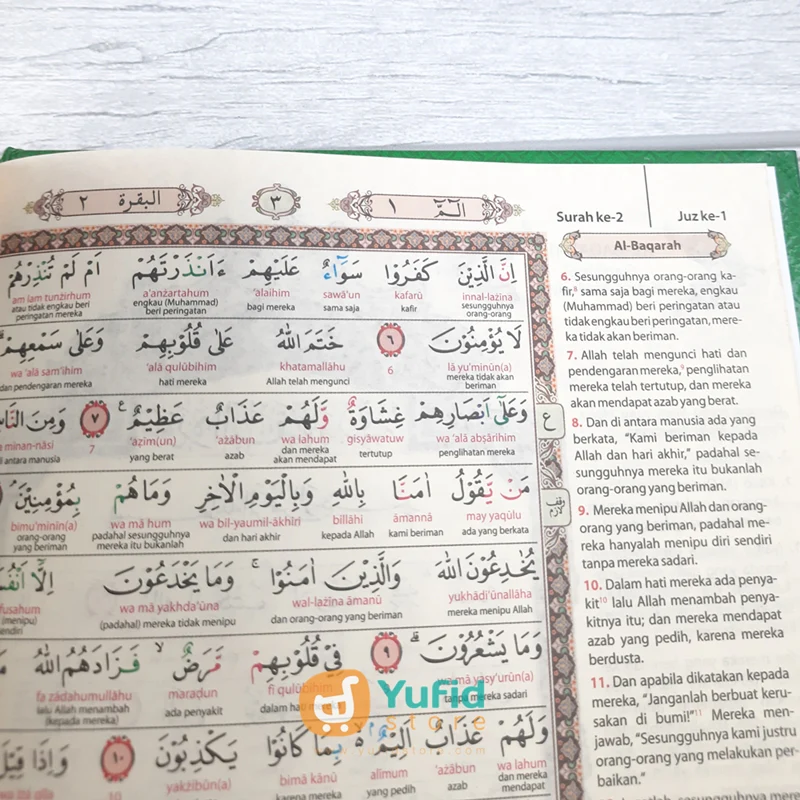 الۤمّۤ ١
٣
البقرة ٢
Surah ke-2
Juz ke-1
Al-Baqarah
اِنَّ الَّذِيْنَ كَفَرُوْا سَوَاۤءٌ عَلَيْهِمْ ءَاَنْذَرْتَهُمْ اَمْ لَمْ تُنْذِرْهُمْ
innal-lażīna kafarū sawā'un 'alaihim a'anżartahum am lam tunżirhum
sesungguhnya orang-orang kafir sama saja bagi mereka engkau (Muhammad) beri peringatan atau tidak engkau beri peringatan mereka
لَا يُؤْمِنُوْنَ ٦ خَتَمَ اللّٰهُ عَلٰى قُلُوْبِهِمْ وَعَلٰى سَمْعِهِمْ
lā yu'minūn(a) 6 khatamallāhu 'alā qulūbihim wa 'alā sam'ihim
mereka tidak akan beriman Allah telah mengunci hati mereka dan pendengaran mereka
وَعَلٰٓى اَبْصَارِهِمْ غِشَاوَةٌ وَّلَهُمْ عَذَابٌ عَظِيْمٌ ٧ وَمِنَ
wa 'alā abṣārihim gisyāwatuw wa lahum 'ażābun 'aẓīm(un) 7 minan-nāsi
penglihatan mereka tertutup dan mereka akan mendapat azab yang berat antara manusia
مَنْ يَّقُوْلُ اٰمَنَّا بِاللّٰهِ وَبِالْيَوْمِ الْاٰخِرِ وَمَا هُمْ بِمُؤْمِنِيْنَ
may yaqūlu āmannā billāhi wa bil-yaumil-ākhiri wa mā hum bimu'minīn(a)
ada yang berkata kami beriman kepada Allah dan hari akhir padahal sesungguhnya mereka itu bukanlah orang-orang yang beriman
يُخٰدِعُوْنَ اللّٰهَ وَالَّذِيْنَ اٰمَنُوْا وَمَا يَخْدَعُوْنَ اِلَّآ
yukhādi'ūnallāha wal-lażīna āmanū wa mā yakhda'ūna
mereka menipu Allah dan orang-orang yang beriman (padahal) mereka tidak menipu
وَمَا يَشْعُرُوْنَ ٩ فِيْ قُلُوْبِهِمْ مَّرَضٌ فَزَادَهُمُ اللّٰهُ
wa mā yasy'urūn(a) fī qulūbihim maraḍun fa zādahumullāhu
tanpa mereka sadari dalam hati ada penyakit lalu Allah menambah (kepada mereka)
وَلَهُمْ عَذَابٌ اَلِيْمٌ بِمَا كَانُوْا يَكْذِبُوْنَ ١٠ وَاِذَا قِيْلَ
wa lahum 'ażābun alīmum bimā kānū yakżibūn(a) 10
dan mereka mendapat azab yang pedih karena mereka
ع
وقف لازم
6. Sesungguhnya orang-orang ka-
fir,⁸ sama saja bagi mereka, engkau
(Muhammad) beri peringatan atau
tidak engkau beri peringatan, mere-
ka tidak akan beriman.
7. Allah telah mengunci hati dan
pendengaran mereka,⁹ penglihatan
mereka telah tertutup, dan mereka
akan mendapat azab yang berat.
8. Dan di antara manusia ada yang
berkata, “Kami beriman kepada
Allah dan hari akhir,” padahal se-
sungguhnya mereka itu bukanlah
orang-orang yang beriman.
9. Mereka menipu Allah dan orang-
orang yang beriman, padahal me-
reka hanyalah menipu diri sendiri
tanpa mereka sadari.
10. Dalam hati mereka ada penya-
kit¹⁰ lalu Allah menambah penya-
kitnya itu; dan mereka mendapat
azab yang pedih, karena mereka
berdusta.
11. Dan apabila dikatakan kepada
mereka, “Janganlah berbuat keru-
sakan di bumi!”¹¹ Mereka men-
jawab, “Sesungguhnya kami justru
orang-orang yang melakukan per-
baikan.”
Yufia
store